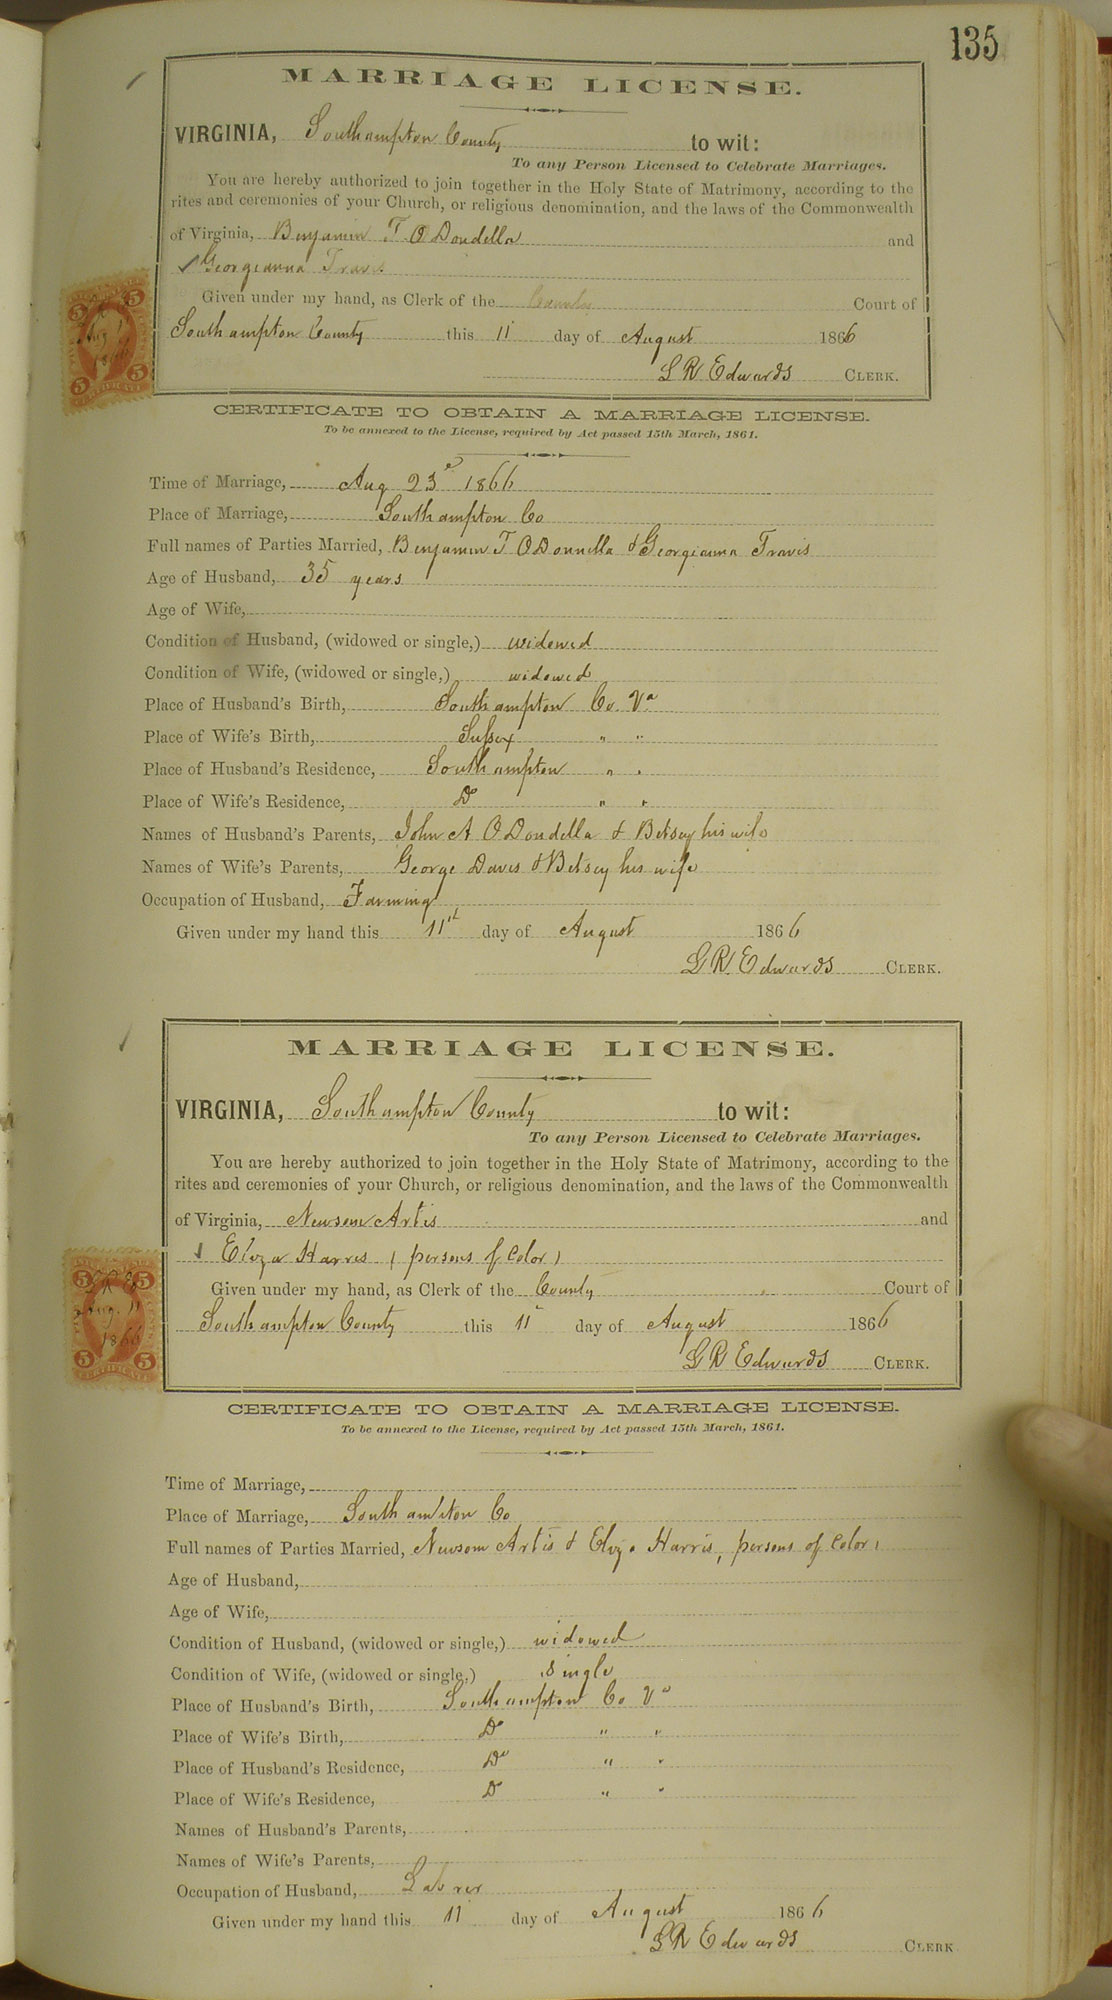 135
MARRIAGE LICENSE.
VIRGINIA, Southampton County to wit:
To any Person Licensed to Celebrate Marriages.
You are hereby authorized to join together in the Holy State of Matrimony, according to the
rites and ceremonies of your Church, or religious denomination, and the laws of the Commonwealth
of Virginia, Benjamin T. O Dondella and
Georgianna Travis
Given under my hand, as Clerk of the County Court of
Southampton County this 11 day of August 1866
L R Edwards CLERK.
CERTIFICATE TO OBTAIN A MARRIAGE LICENSE.
To be annexed to the License, required by Act passed 15th March, 1861.
Time of Marriage, Aug 23d 1866
Place of Marriage, Southampton Co
Full names of Parties Married, Benjamin T O Donnella & Georgianna Travis
Age of Husband, 35 years
Age of Wife,
Condition of Husband, (widowed or single,) widowed
Condition of Wife, (widowed or single,) widowed
Place of Husband's Birth, Southampton Co Va
Place of Wife's Birth, Sussex " "
Place of Husband's Residence, Southampton " "
Place of Wife's Residence, Do " "
Names of Husband's Parents, John A O Dondella & Betsey his wife
Names of Wife's Parents, George Davis & Betsey his wife
Occupation of Husband, Farming
Given under my hand this 11th day of August 1866
L R Edwards CLERK.
MARRIAGE LICENSE.
VIRGINIA, Southampton County to wit:
To any Person Licensed to Celebrate Marriages.
You are hereby authorized to join together in the Holy State of Matrimony, according to the
rites and ceremonies of your Church, or religious denomination, and the laws of the Commonwealth
of Virginia, Newsom Artis and
Eliza Harris (persons of Color)
Given under my hand, as Clerk of the County Court of
Southampton County this 11 day of August 1866
L R Edwards CLERK.
5 5
Aug. 11
1866
5 5
CERTIFICATE TO OBTAIN A MARRIAGE LICENSE.
To be annexed to the License, required by Act passed 15th March, 1861.
Time of Marriage,
Place of Marriage, Southampton Co
Full names of Parties Married, Newsom Artis & Eliza Harris, persons of Color,
Age of Husband,
Age of Wife,
Condition of Husband, (widowed or single,) widowed
Condition of Wife, (widowed or single,) single
Place of Husband's Birth, Southampton Co Va
Place of Wife's Birth, Do " "
Place of Husband's Residence, Do " "
Place of Wife's Residence, Do " "
Names of Husband's Parents,
Names of Wife's Parents,
Occupation of Husband, Labrer
Given under my hand this 11 day of August 1866
L R Edwards CLERK